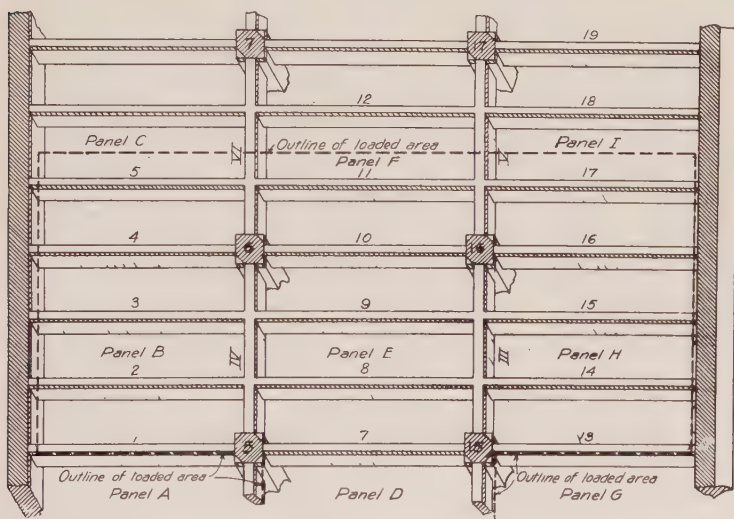 7
7
19
12
18
Panel C
VI
Outline of loaded area
Panel F
V
Panel I
5
11
17
4
10
16
3
9
15
Panel B
IV
Panel E
III
Panel H
2
8
14
1
7
13
Outline of loaded area
Panel A
Panel D
Outline of loaded area
Panel G